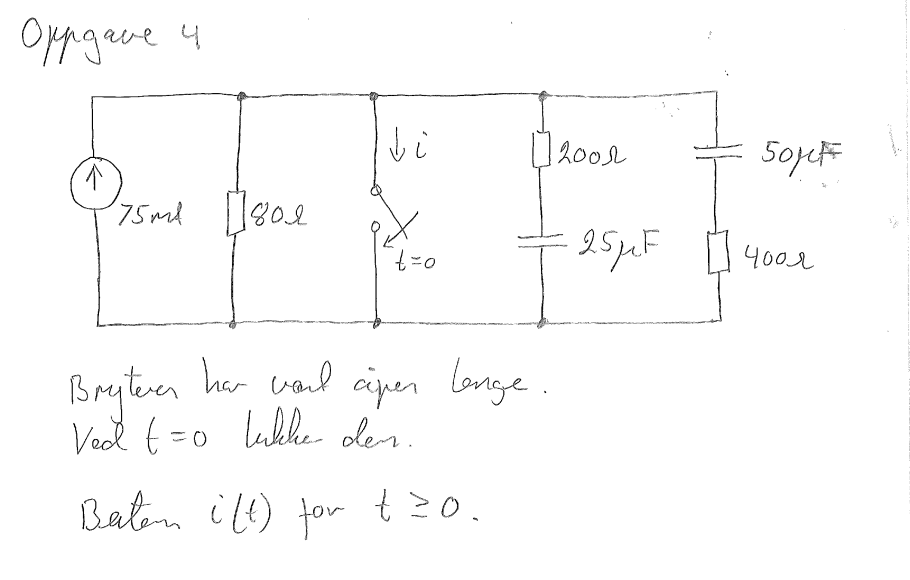 Oppgave 4
i
200Ω
50µF
75mA
80Ω
t=0
25µF
400Ω
Bryteren har vært åpen lenge.
Ved t=0 lukker den.
Bestem i(t) for t ≥ 0.